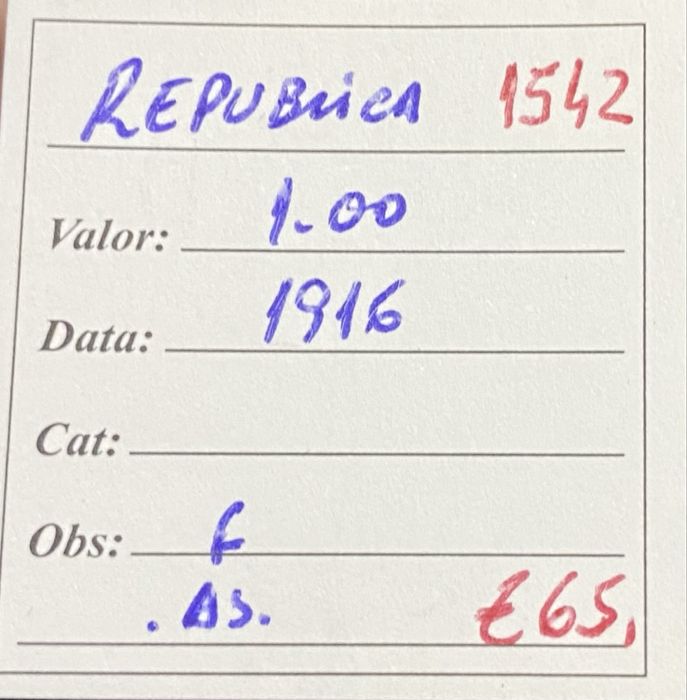 REPUBLICA 1542
Valor: 1.00
Data: 1916
Cat:
Obs: F
. AS. €65,